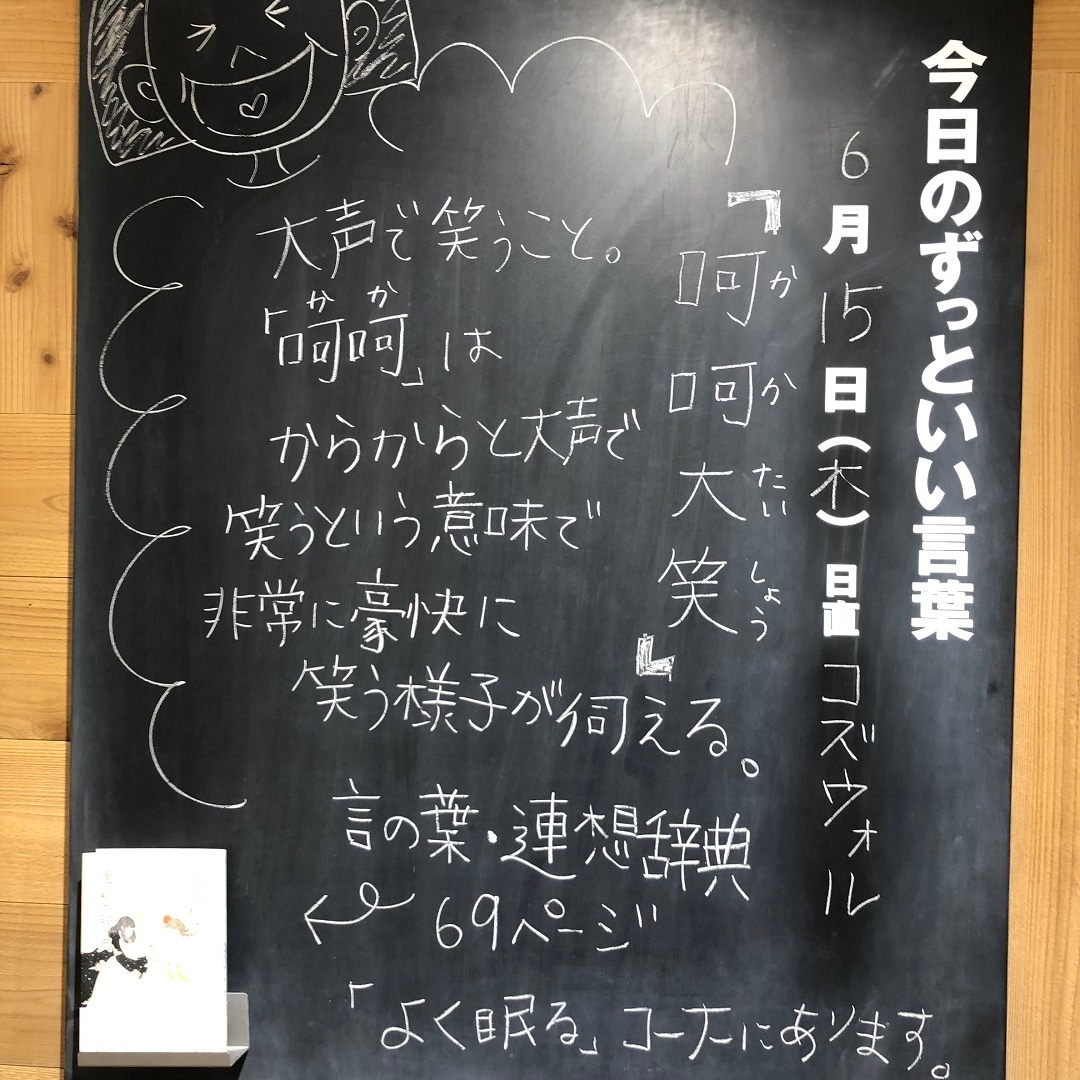 今日のずっといい言葉
6月15日(木) 日直 コズウォル
『呵呵大笑』
かかたいしょう
大声で笑うこと。
「呵呵」は
かか
からからと大声で
笑うという意味で
非常に豪快に
笑う様子が伺える。
言の葉・連想辞典
69ページ
「よく眠る」コーナーにあります。